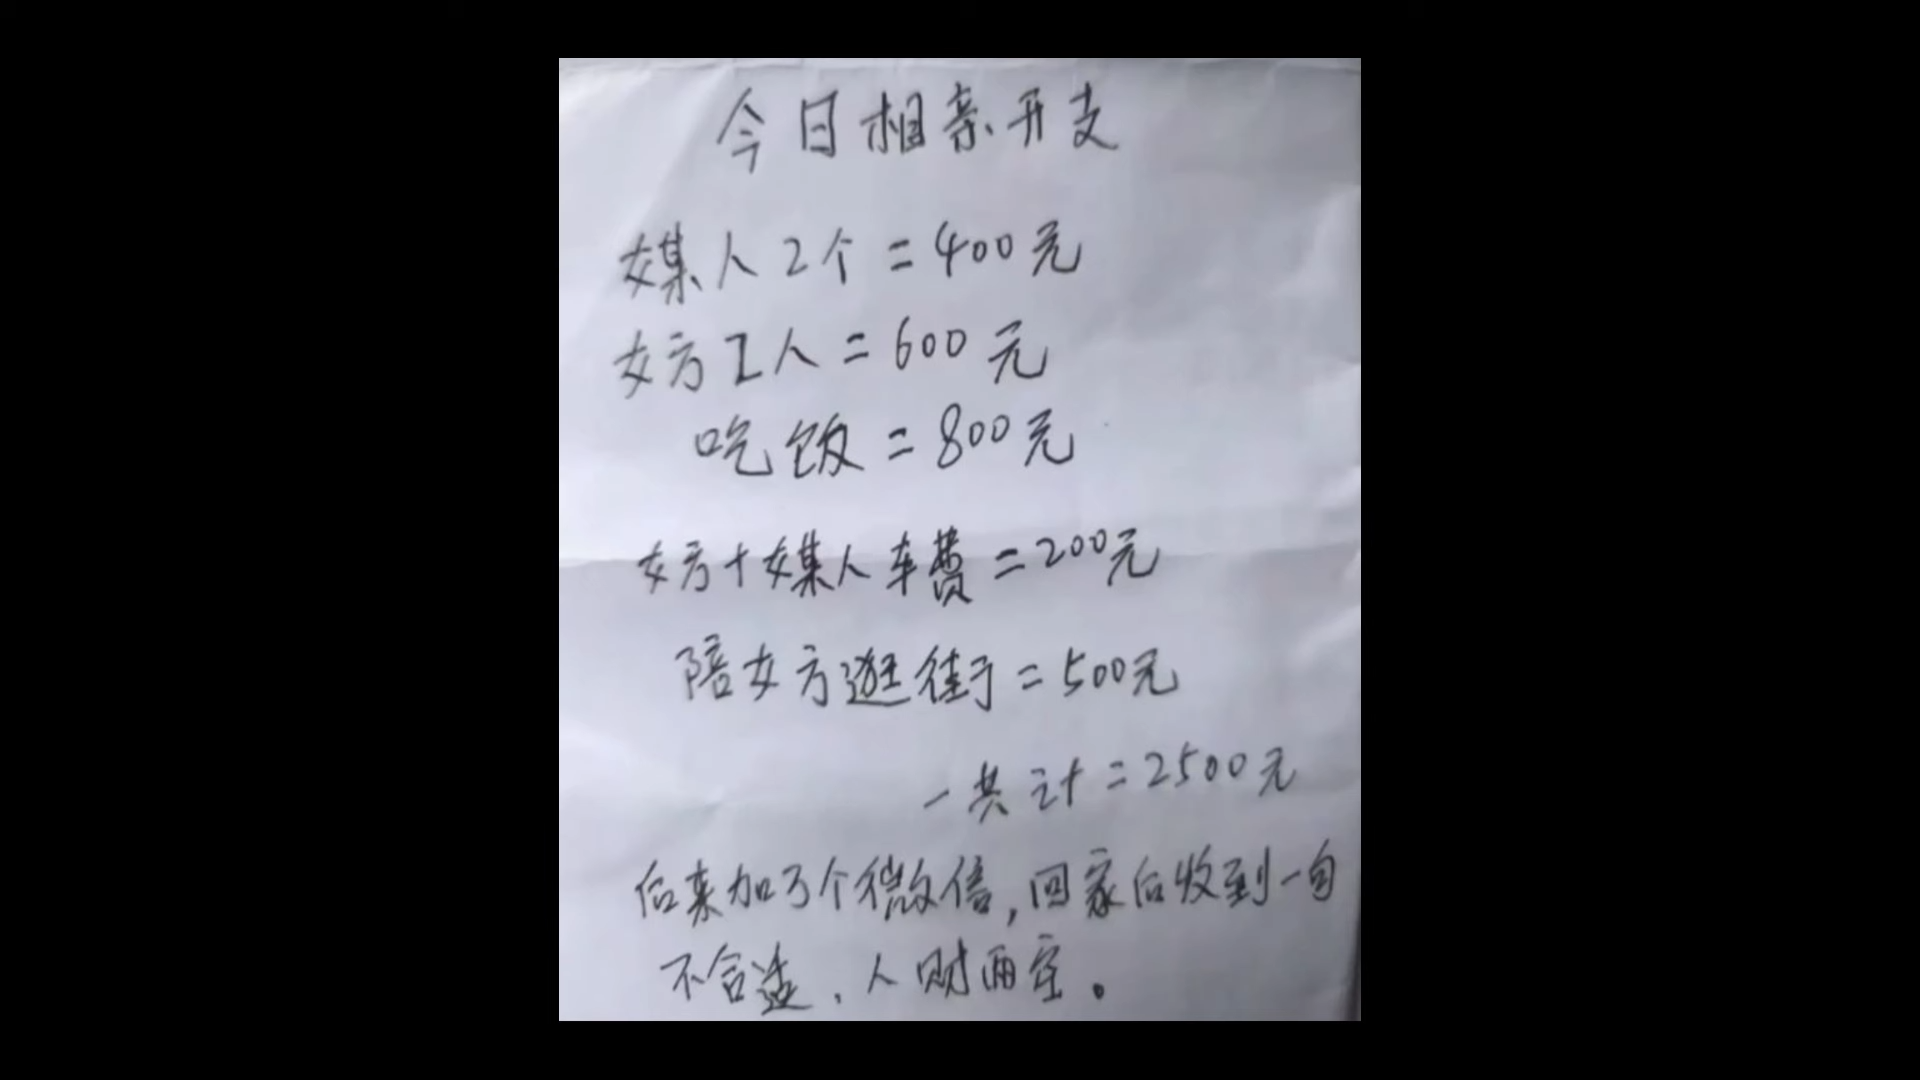 今日相亲开支
媒人2个=400元
女方工人=600元
吃饭=800元
女方+媒人车费=200元
陪女方逛街=500元
一共计=2500元
后来加了个微信,回家后收到一句
不合适、人财两空。